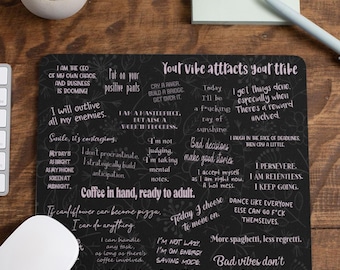 Your vibe attracts your tribe
I AM THE CEO
OF MY OWN CHAOS,
AND BUSINESS
IS BOOMING!
Put on your
positive pants
CRY A RIVER,
BUILD A BRIDGE,
GET OVER IT.
Today
I'll be
a f*ucking
ray of
sunshine
I get things done,
especially when
There's a reward
involved.
I will outlive
all my enemies...
I AM A MASTERPIECE,
BUT ALSO A
WORK IN PROGRESS.
Smile, it's contagious.
I'm not
judging.
I'm taking
mental
notes.
Bad decisions
make good stories
I LAUGH IN THE FACE OF DEADLINES,
THEN CRY A LITTLE.
MY DAY IS
AS NIGHT
AS MY PHONE
SCREEN AT
MIDNIGHT
I don't procrastinate,
I strategically build
anticipation.
I accept myself
as I am right now,
a hot mess.
I PERSEVERE,
I AM RELENTLESS.
I KEEP GOING.
Coffee in hand, ready to adult.
DANCE LIKE EVERYONE
ELSE CAN GO F*CK
THEMSELVES.
If cauliflower can become pizza,
I can do anything.
Today I choose
to move on.
I can handle
any task,
as long as there's
coffee involved.
I'M NOT LAZY.
I'M ON ENERGY
SAVING MODE.
More spaghetti, less regretti.
Bad vibes don't